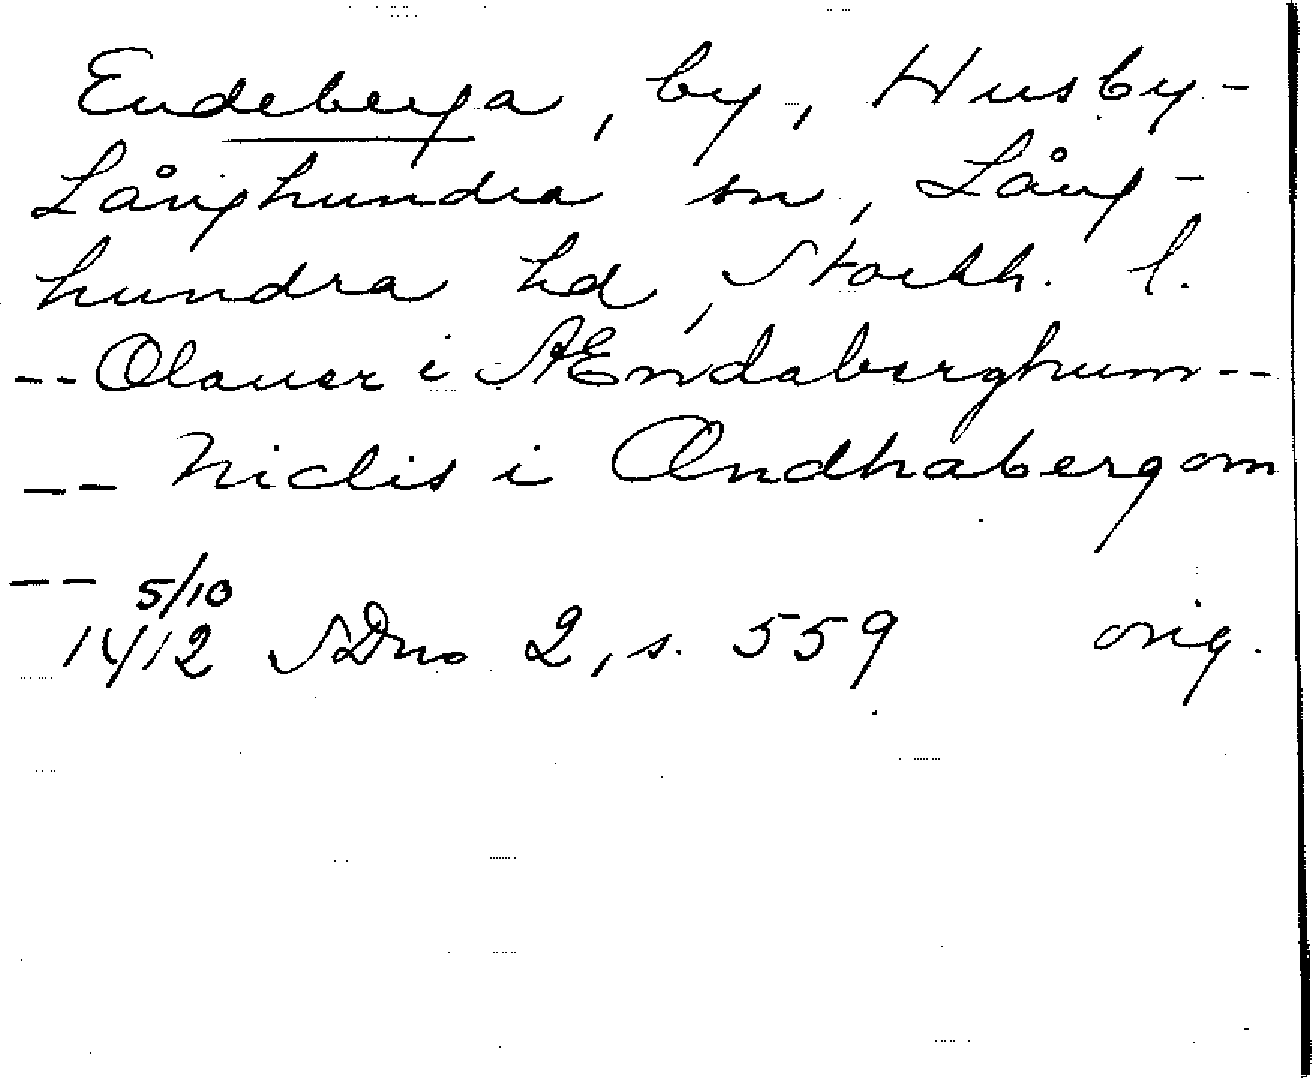 Endeberga, by, Husby-
Långhundra sn, Lång-
hundra hd, Stockh. l.
-- Olauer i Ændaberghum --
-- Niclis i Ændhabergom
-- 5/10
1412 SDns 2, s. 559 orig.